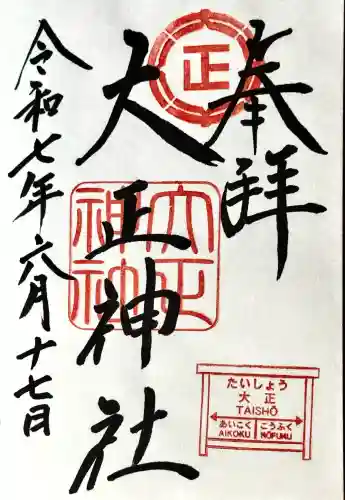 奉拝
正
大正神社
大正神社
令和七年六月十七日
たいしょう
大正
TAISHŌ
あいこく こうふく
AIKOKU KŌFUKU